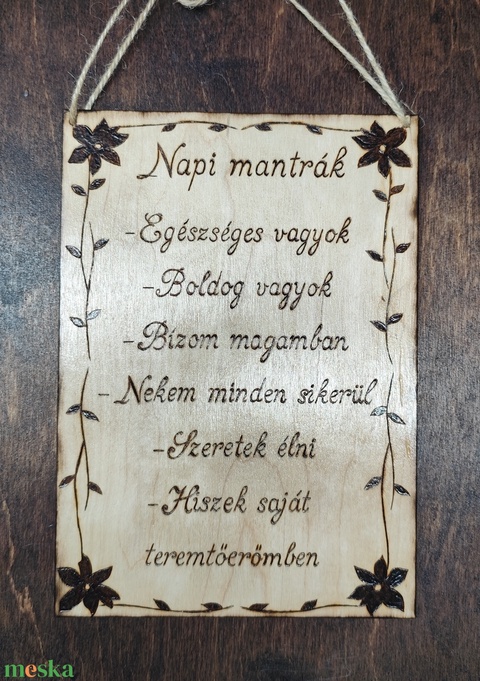 Napi mantrák
-Egészséges vagyok
-Boldog vagyok
-Bízom magamban
-Nekem minden sikerül
-Szeretek élni
-Hiszek saját
teremtőerőmben
meska